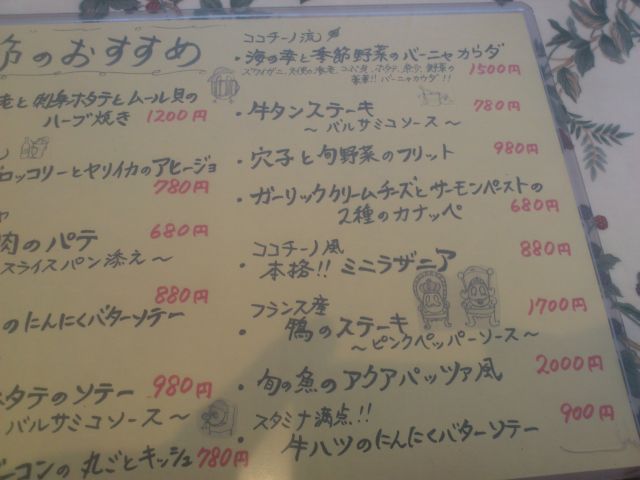 のおすすめ
老と 刺身ホタテと ムール貝の
ハーブ焼き 1200円
ロッコリーとヤリイカのアヒージョ
780円
肉のパテ 680円
スライスパン添え〜
880円
のにんにくバターソテー
ホタテのソテー 980円
バルサミコソース〜
ーコンの 丸ごとキッシュ 780円
ココチーノ流
・海の幸と季節野菜のバーニャカウダ
1500円
豪華!! バーニャカウダ!!
・牛タンステーキ 780円
〜バルサミコソース〜
・穴子と旬野菜のフリット 980円
・ガーリッククリームチーズとサーモンペーストの
2種のカナッペ 680円
ココチーノ風
・本格!! ミニラザニア 880円
フランス産
・鴨のステーキ 1700円
〜ピンクペッパーソース〜
・旬の魚のアクアパッツァ風 2000円
スタミナ満点!!
・牛ハツのにんにくバターソテー 900円